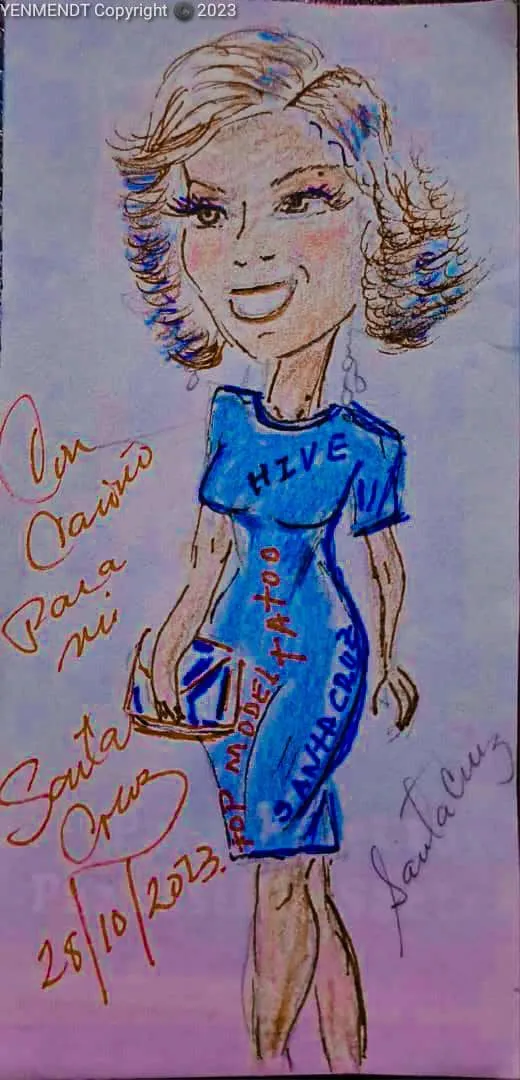 YENMENDT Copyright 2023
HIVE
TOP MODEL TATOO
SANTA CRUZ
Con
Cariño
Para
mi
Santa
Cruz
28/10/2023.
Santa Cruz